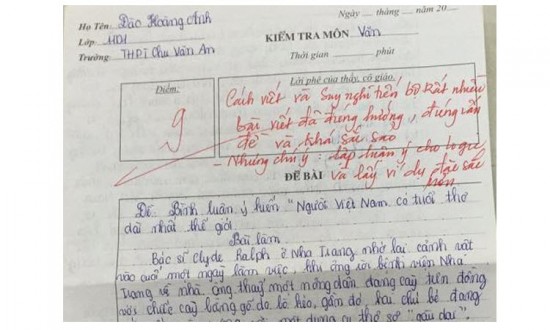 Họ Tên: Đào Hoàng Anh
Ngày ..... tháng ..... năm 20.....
Lớp 11D1
KIỂM TRA MÔN Văn
Trường: THPT Chu Văn An
Thời gian phút
Điểm:
9
Lời phê của thầy, cô giáo.
Cách viết và suy nghĩ tiến bộ rất nhiều
bài viết đã đúng hướng, đúng vấn
đề và khá sắc sảo
- Nhưng chú ý: lập luận ý cho logic
và lấy ví dụ đặc sắc
hơn
ĐỀ BÀI
Đề: Bình luận ý kiến "Người Việt Nam có tuổi thơ
dài nhất thế giới.
Bài làm
Bác sĩ Clyde Ralph ở Nha Trang nhớ lại cảnh vật
vào cuối một ngày làm việc, khi ông rời bệnh viện Nha
Trang về nhà. Ông thấy một nông dân đang cày trên đồng
với chiếc cày bằng gỗ do bò kéo, gần đó, hai chú bé đang
một dụng cụ thô sơ "gầu dai".